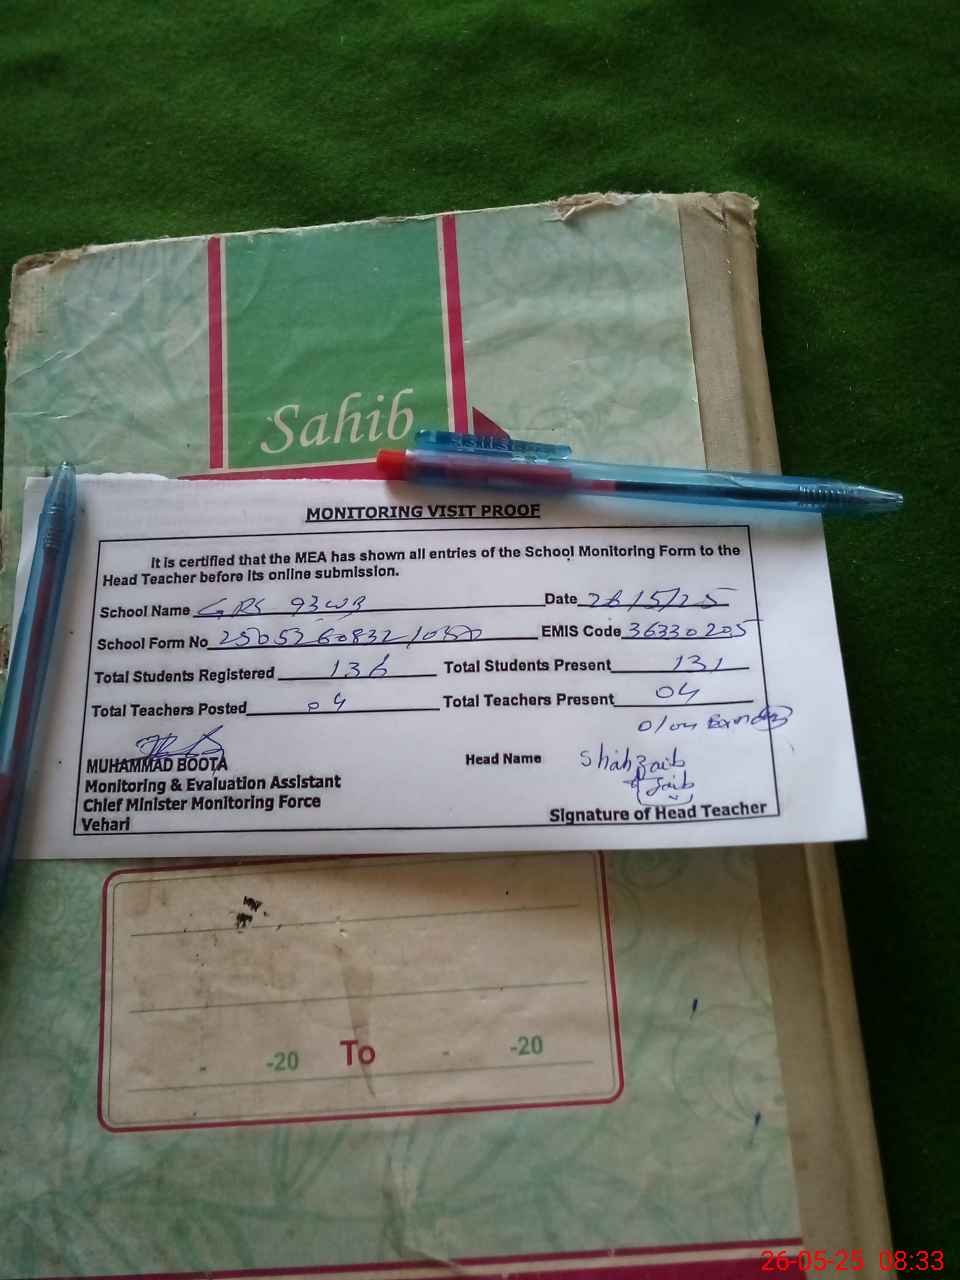 Sahib
MONITORING VISIT PROOF
It is certified that the MEA has shown all entries of the School Monitoring Form to the
Head Teacher before its online submission.
School Name GPS 93WB Date 26/5/25
School Form No EMIS Code 36330205
Total Students Registered 136 Total Students Present 131
Total Teachers Posted 04 Total Teachers Present 04
MUHAMMAD BOOTA Head Name Shahzaib
Monitoring & Evaluation Assistant
Chief Minister Monitoring Force
Vehari Signature of Head Teacher
-20 To -20
26-05-25 08:33